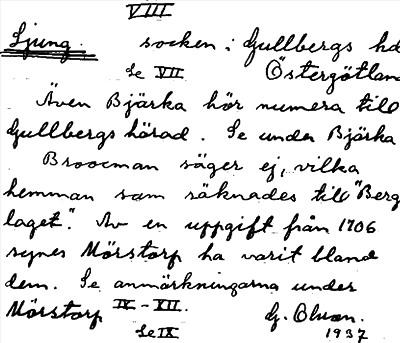 VIII
Ljung. socken i Gullbergs hd
Se VII Östergötland
Även Bjärka hör numera till
Gullbergs härad. Se under Bjärka
Broocman säger ej, vilka
hemman som räknades till "Berg
laget". Av en uppgift från 1706
synes Mörstorp ha varit bland
dem. Se anmärkningarna under
Mörstorp IX-XII. G. Olsson.
Se IX 1937